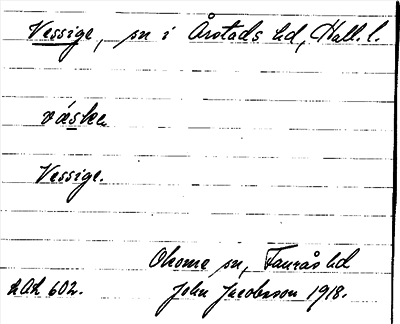 Vessige, sn i Årstads hd, Hall. l.
väske
Vessige.
Okome sn, Faurås hd
John Jacobsson 1918.